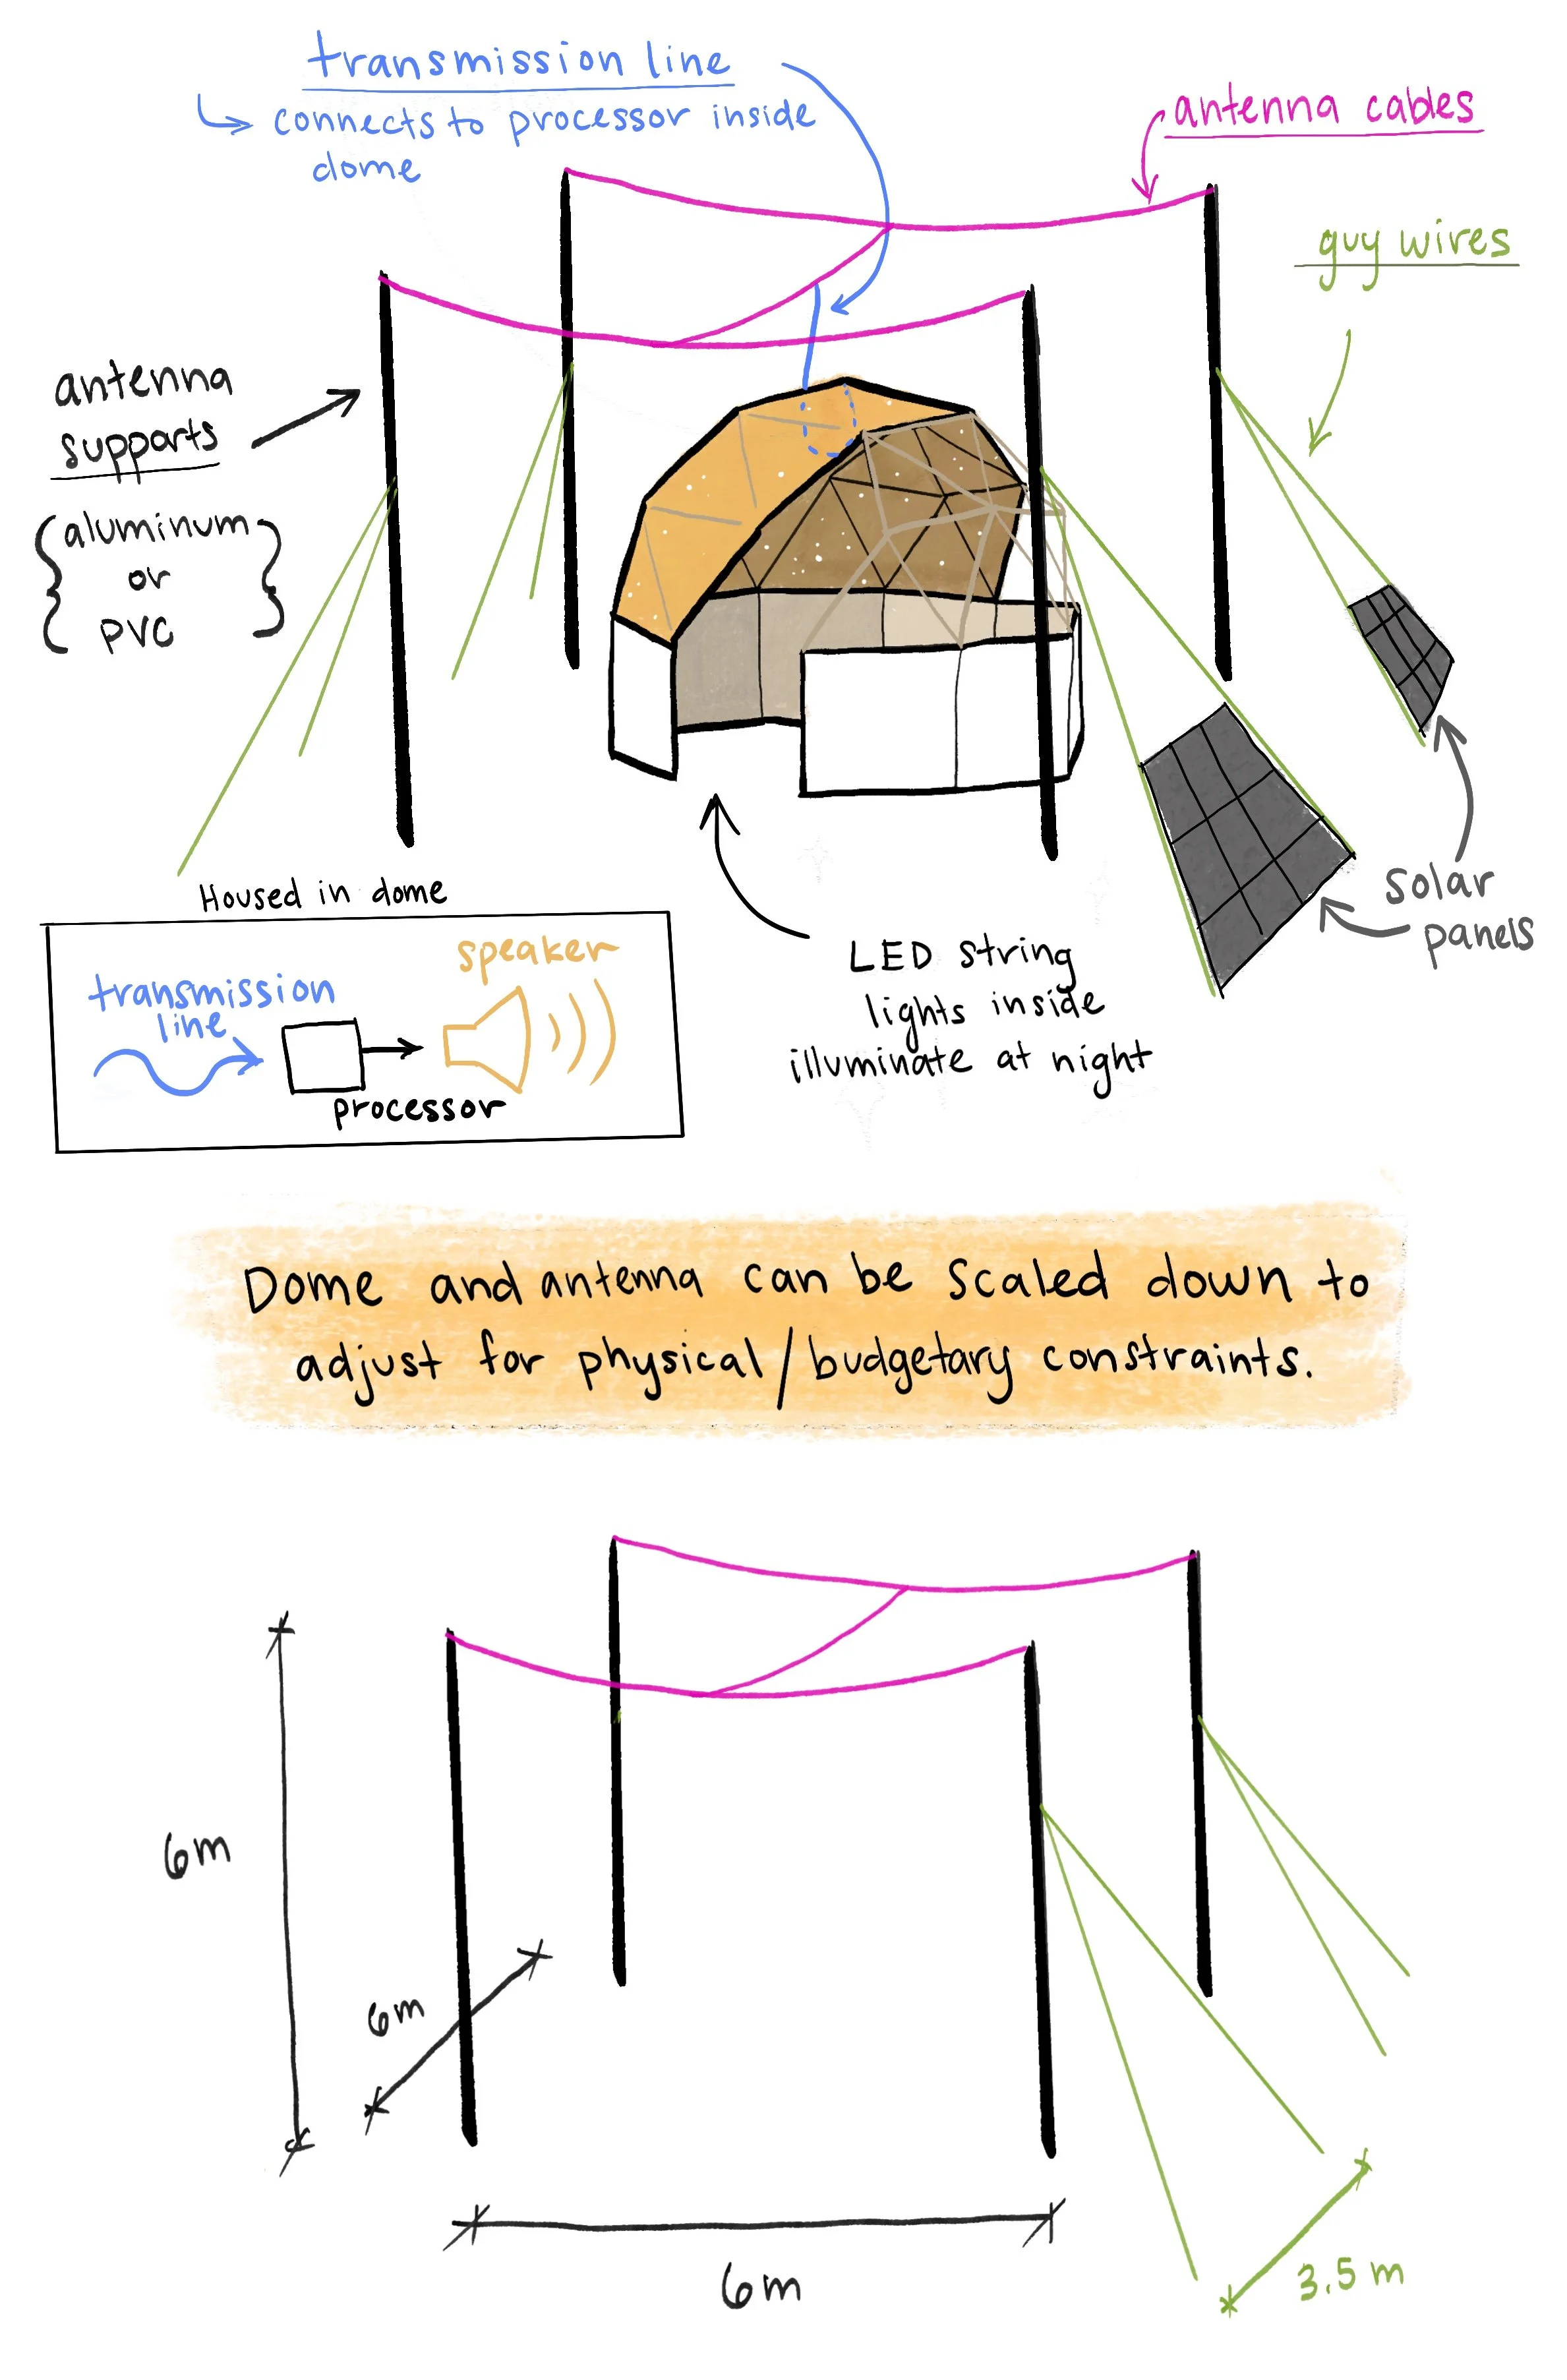 transmission line
connects to processor inside
dome
antenna cables
guy wires
antenna
supports
aluminum
or
PVC
Housed in dome
transmission
line
speaker
processor
LED string
lights inside
illuminate at night
solar
panels
Dome and antenna can be scaled down to
adjust for physical/budgetary constraints.
6m
6m
6m
3.5 m